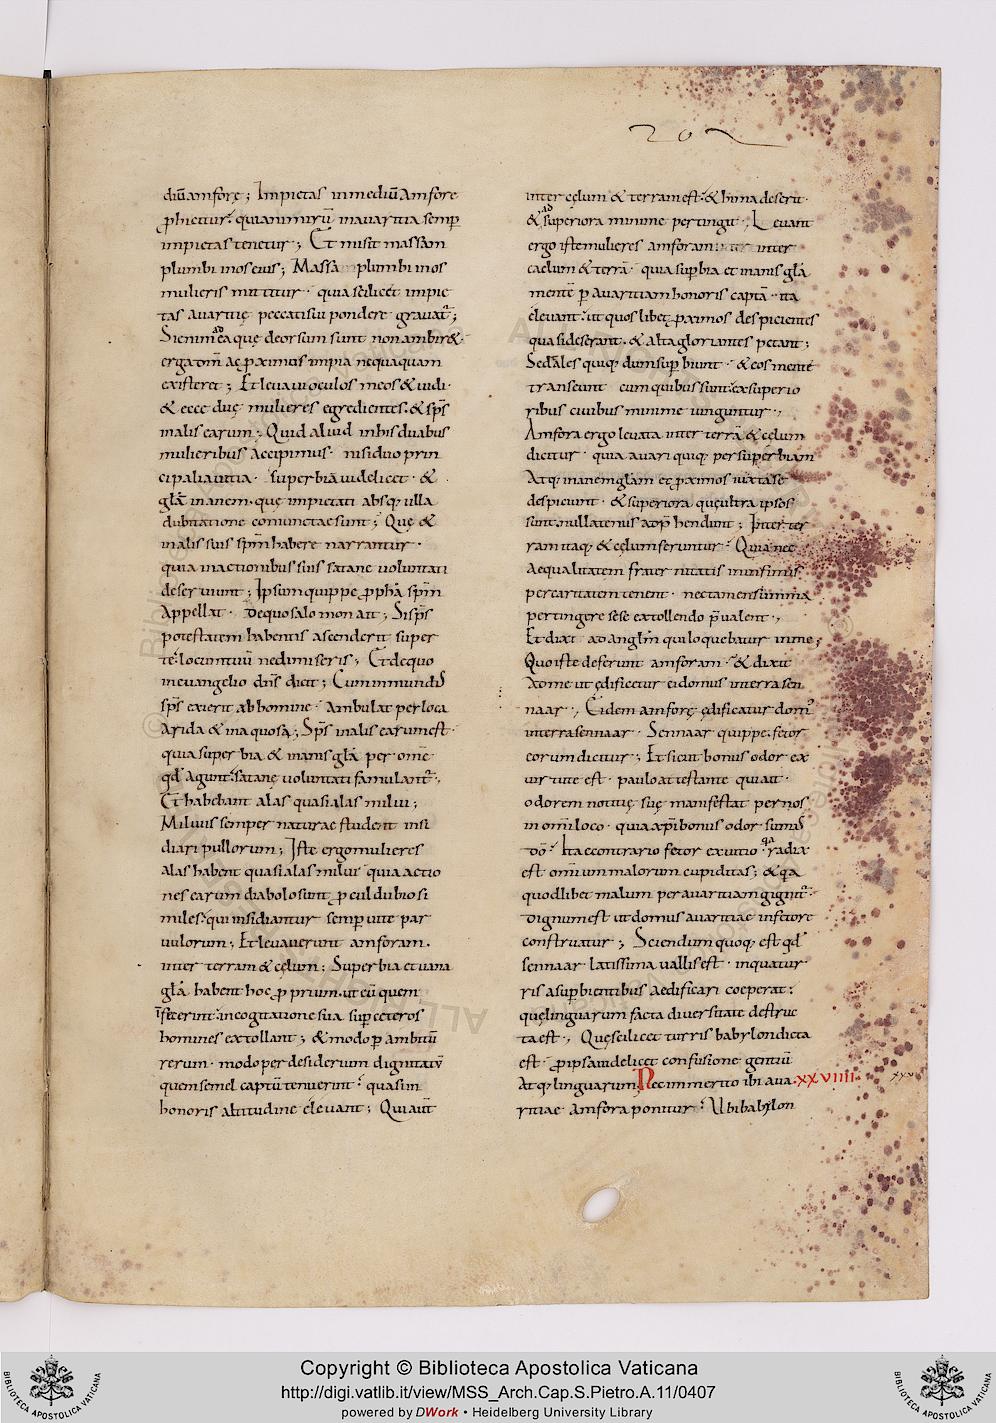 202
diū amforę; Impietas in mediū amfore
ꝓhicitur. quia nimirū in avaritia semꝑ
impietas tenetur; Et misit massam
plumbi in os eius; Massā plumbi in os
mulieris mittitur. quia scilicet impie
tas avaritię peccati sui pondere gravat̄;
Si enim ad ea quę deorsum sunt non ambiret.
erga dm̄ ac ꝓximus impia nequaquam
existeret; Et levavi oculos meos & vidi.
& ecce duę mulieres egredientes. & sp̄s
in alis earum; Quid aliud in his duabus
mulieribus accipimus. nisi duo prin
cipalia vitia. superbiā videlicet. &
glā inanem. quę impietati absq; ulla
dubitatione coniunctae sunt; Quę &
in alis suis sp̄m habere narrantur.
quia in actionibus suis satanę voluntati
deserviunt; Ipsum quippe ꝓpha sp̄m
appellat. de quo salomon ait; Si sp̄s
potestatem habentis ascenderit super
te. locum tuū ne dimiseris; Et de quo
in evangelio dn̄s dicit; Cum inmundus
sp̄s exierit ab homine. ambulat per loca
arida & inaquosa; Sp̄s in alis earum est.
quia superbia & inanis glā per om̄e
qd̄ agunt. satanę voluntati famulant̄.
Et habebant alas quasi alas milui;
Miluus semper naturae student insi
diari pullorum; Iste ergo mulieres
alas habent quasi alas milui quia actio
nes earum diabolo sunt ꝓcul dubio si
miles. qui insidiantur semꝑ vitę par
vulorum; Et levaverunt amforam.
inter terram & cęlum; Superbia et vana
glā habent hoc ꝓprium. ut eū quem
īfecerint. in cogitatione sua suꝑ ceteros
homines extollant; & modo ꝑ ambitū
rerum. modo per desiderium dignitatū
quem semel captū tenuerint. quasi in
honoris altitudine elevant; Qui aūt
inter cęlum & terram est. & hima deserit.
& ad superiora minime pertingit; Levant
ergo iste mulieres amforam inter
caelum & terrā. quia suꝑbia et inanis glā
mentē ꝑ avaritiam honoris captā. ita
elevant. ut quos libet ꝓximos despicientes
quasi deserant. & alta gloriantes petant;
Sed tales quiq; dum suꝑbiunt. & eos mente
transeunt cum quibus sunt. & superio
ribus civibus minime iunguntur.,
Amfora ergo levata inter terrā & cęlum
dicitur. quia avari quiq; per superbiam
atq; inanem glam et ꝓximos iuxta se
despiciunt. & superiora quę ultra ipsos
sunt. nullatenus app̄hendunt; Inter ter
ram itaq; & cęlum feruntur. Quia nec
aequalitatem fraternitatis in infimis
per caritatem tenent. nec tamen summa
pertingere sese extollendo p̄valent.,
Et dixi ad anglm̄ qui loquebatur in me;
Quo iste deferunt amforam. & dixit
ad me ut ędificetur ei domus in terra sen
naar., Eidem amforę ędificatur dom;
in terra sennaar. Sennaar quippe. fetor
eorum dicitur; Et sicut bonus odor ex
virtute est. paulo attestante qui ait.
odorem notitię suę manifestat per nos
in omi loco. quia xp̄i bonus odor sumus
dō. Ita econtrario fetor ex vitio. qa radix
est om̄ium malorum cupiditas; & qa
quodlibet malum per avaritiam gignit̄.
dignum est ut domus avaritiae in fetore
construatur; Sciendum quoq; est qd̄
sennaar latissima vallis est. in qua tur
ris a suꝑbientibus aedificari coeperat.
quę linguarum facta diversitate destruc
ta est., Quę scilicet turris babylon dicta
est. ꝓ ipsa videlicet confusione gentiū
atq; linguarum Nec inmerito ibi ava.xxviiii.
ritiae amfora ponitur. Ubi babylon
Copyright © Biblioteca Apostolica Vaticana
http://digi.vatlib.it/view/MSS_Arch.Cap.S.Pietro.A.11/0407
powered by DWork • Heidelberg University Library
BIBLIOTECA APOSTOLICA VATICANA
BIBLIOTECA APOSTOLICA VATICANA